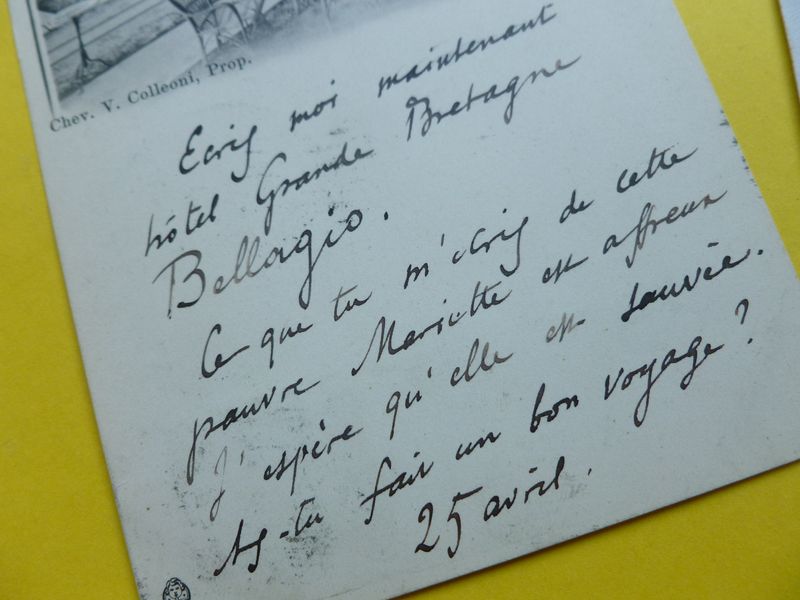 Chev. V. Colleoni, Prop.
Ecris moi maintenant
hôtel Grande Bretagne
Bellagio.
Ce que tu m'écris de cette
pauvre Mariette est affreux
J'espère qu'elle est sauvée.
As-tu fait un bon voyage?
25 avril.